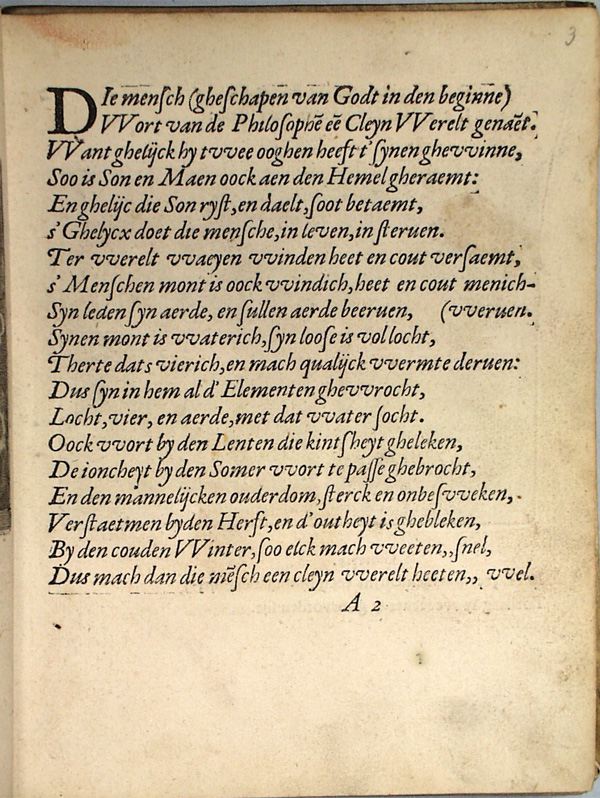 3
DIe mensch (gheschapen van Godt in den beginne)
VVort van de Philosophē eē Cleyn VVerelt genaēt.
VVant ghelijck hy tvvee ooghen heeft t'synen ghevvinne,
Soo is Son en Maen oock aen den Hemel gheraemt:
En ghelijc die Son ryst, en daelt, soot betaemt,
s'Ghelycx doet die mensche, in leven, in steruen.
Ter vverelt vvaeyen vvinden heet en cout versaemt,
s'Menschen mont is oock vvindich, heet en cout menich-
Syn leden syn aerde, en sullen aerde beeruen, (vveruen.
Synen mont is vvaterich, syn loose is vol locht,
Therte dats vierich, en mach qualijck vvermte deruen:
Dus syn in hem al d'Elementen ghevvrocht,
Locht, vier, en aerde, met dat vvater socht.
Oock vvort by den Lenten die kintsheyt gheleken,
De ioncheyt by den Somer vvort te passe ghebrocht,
En den mannelijcken ouderdom, sterck en onbesvveken,
Verstaetmen byden Herfst, en d'outheyt is ghebleken,
By den couden VVinter, soo elck mach vveeten,, snel,
Dus mach dan die mēsch een cleyn vverelt heeten,, vvel.
A 2